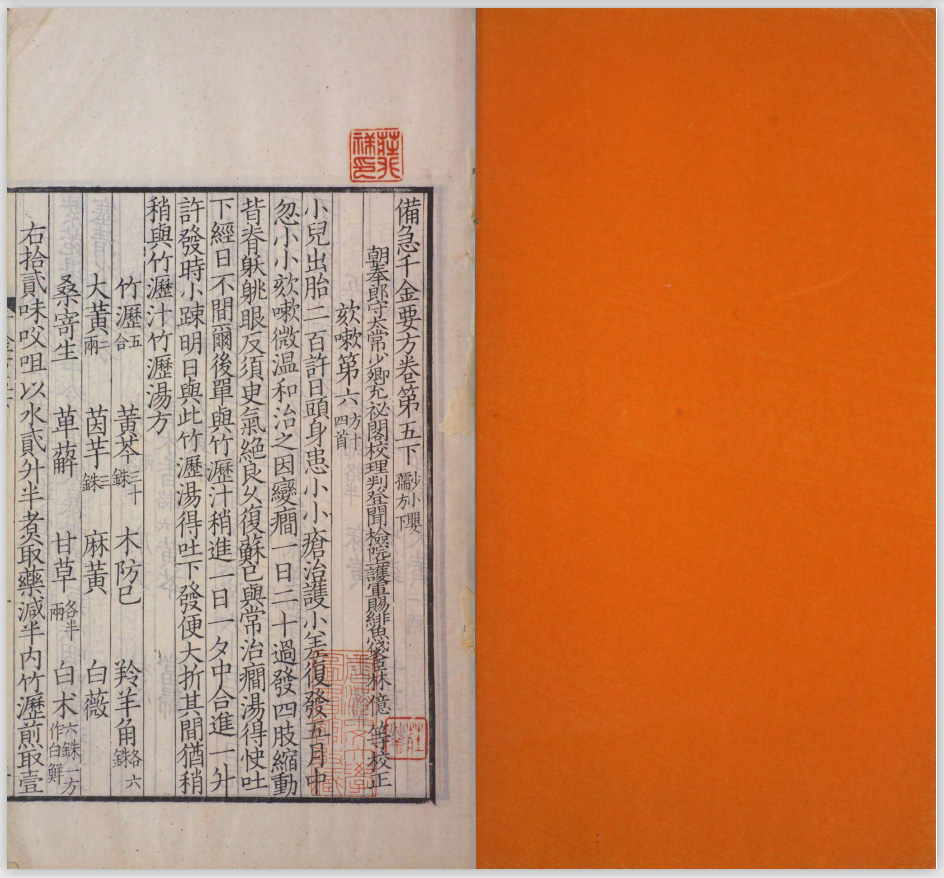 備急千金要方卷第五下 少小嬰孺方下
朝奉郎守太常少卿充祕閣校理判登聞檢院護軍賜緋魚袋臣林億等校正
欬嗽第六 方十四首
小兒出胎二百許日頭身患小小瘡治護小差復發五月中
忽小小欬嗽微温和治之因變癇一日二十過發四肢縮動
背脊躽䠷眼反須臾氣絕良久復蘇已與常治癇湯得快吐
下經日不間爾後單與竹瀝汁稍進一日一夕中合進一升
許發時小踈明日與此竹瀝湯得吐下發便大折其間猶稍
稍與竹瀝汁竹瀝湯方
竹瀝五合 黃芩三十銖 木防己 羚羊角各六銖
大黃二兩 茵芋三銖 麻黃 白薇
桑寄生 萆薢 甘草各半兩 白术六銖一方作白鮮
右拾貳味㕮咀以水貳升半煮取藥減半內竹瀝煎取壹